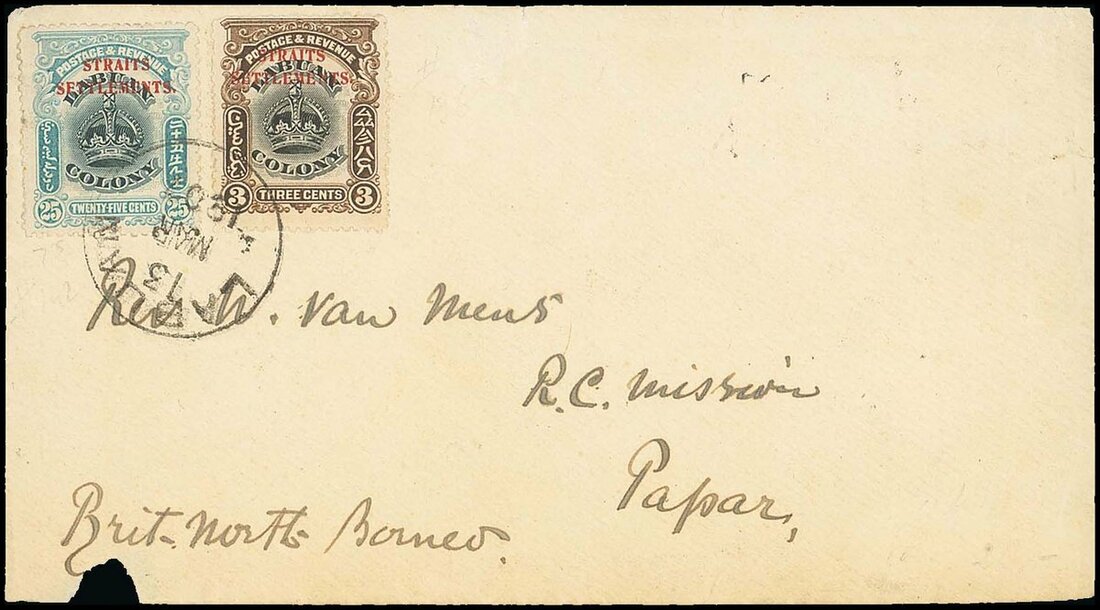 POSTAGE & REVENUE
STRAITS
SETTLEMENTS.
LABUAN
COLONY
25 TWENTY-FIVE CENTS 25
POSTAGE & REVENUE
STRAITS
SETTLEMENTS.
LABUAN
COLONY
3 THREE CENTS 3
13
MAR
Rev. W. van Mens
R.C. Mission
Papar,
Brit. North Borneo.